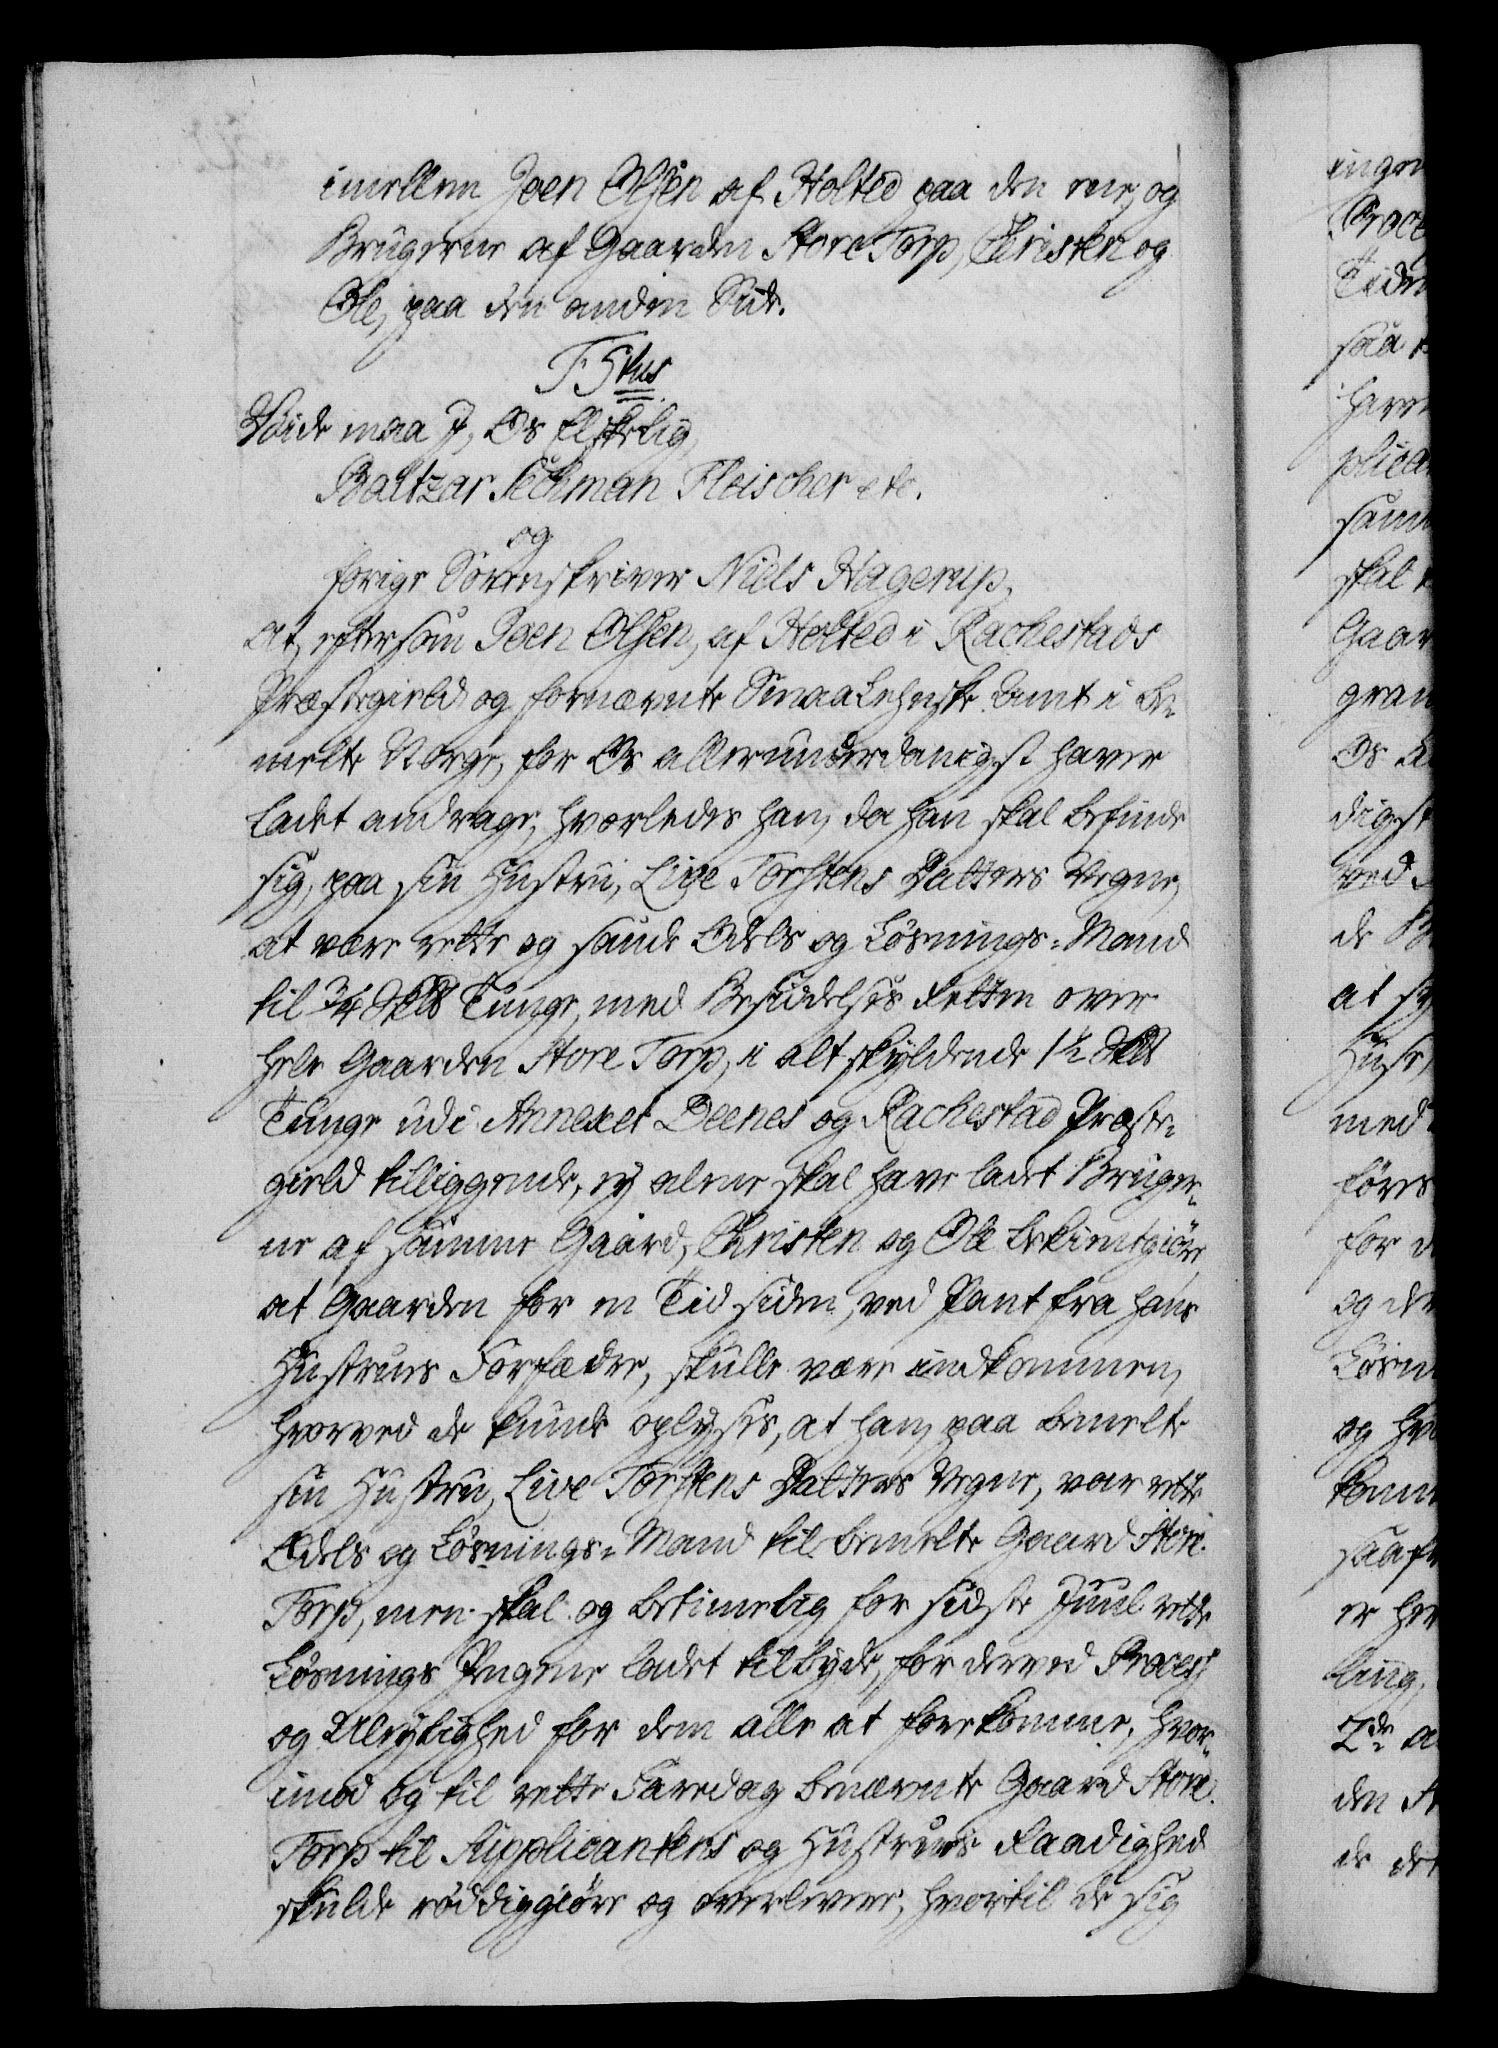 imellem Joen Olsen af Holted paa den ene, og
Brugerne af Gaarden Store Torp, Christen og
Ole, paa den anden Side.
F 5tus
Viide maa J, Os Elskelig,
Baltzar Sechman Fleischer etc.
og
forige Sorenskriver Niels Hagerup,
at, eftersom Joen Olsen, af Holted i Rachestads
Præstegield og fornævnte Smaalehnske Amt i be-
melte Norge, for Os allerunderdanigst haver
ladet andrage, hvorledes han, da han skal befinde
sig, paa sin Hustru, Live Torstens Datters Vegne,
at være rette og sande Odels og Løsnings-Mand
til 3/4 Skld Tunge, med Besiddelses Retten over
hele Gaarden Store Torp, i alt skyldende 1 1/2 Skld
Tunge udi Annexet Deenes og Rachestad Præste-
gield tilliggende, ey alene skal have ladet Bruger-
ne af samme Gaard, Christen og Ole bekiendtgiøre,
at Gaarden for en Tid siden, ved Pant fra hans
Hustrues Forfædre, skulle være indkommen,
hvorved de kunde oplyses, at han, paa bemelte
sin Hustru, Live Torstens Datters Vegne, var rette
Odels og Løsnings-Mand til bemelte Gaard Store
Torp, men skal og betimelig for sidste Juul rette
Løsnings Pengene ladet tilbyde, for derved Process
og Uleylighed for dem alle at forekomme, hvor-
imod og til rette Faredag benævnte Gaard Store
Torp til Supplicantens og Hustrues Raadighed
skulde røddiggiøre og overlevere; hvortil de sig
ingen
Proce
Tiden
saa
have
plican
samm
skal
Gaar
gran
Os
digst
ved
de
at
Huse,
med
føres
for
og den
Løsn
og hve
komm
saaf
er her
ling,
2de
den
de det